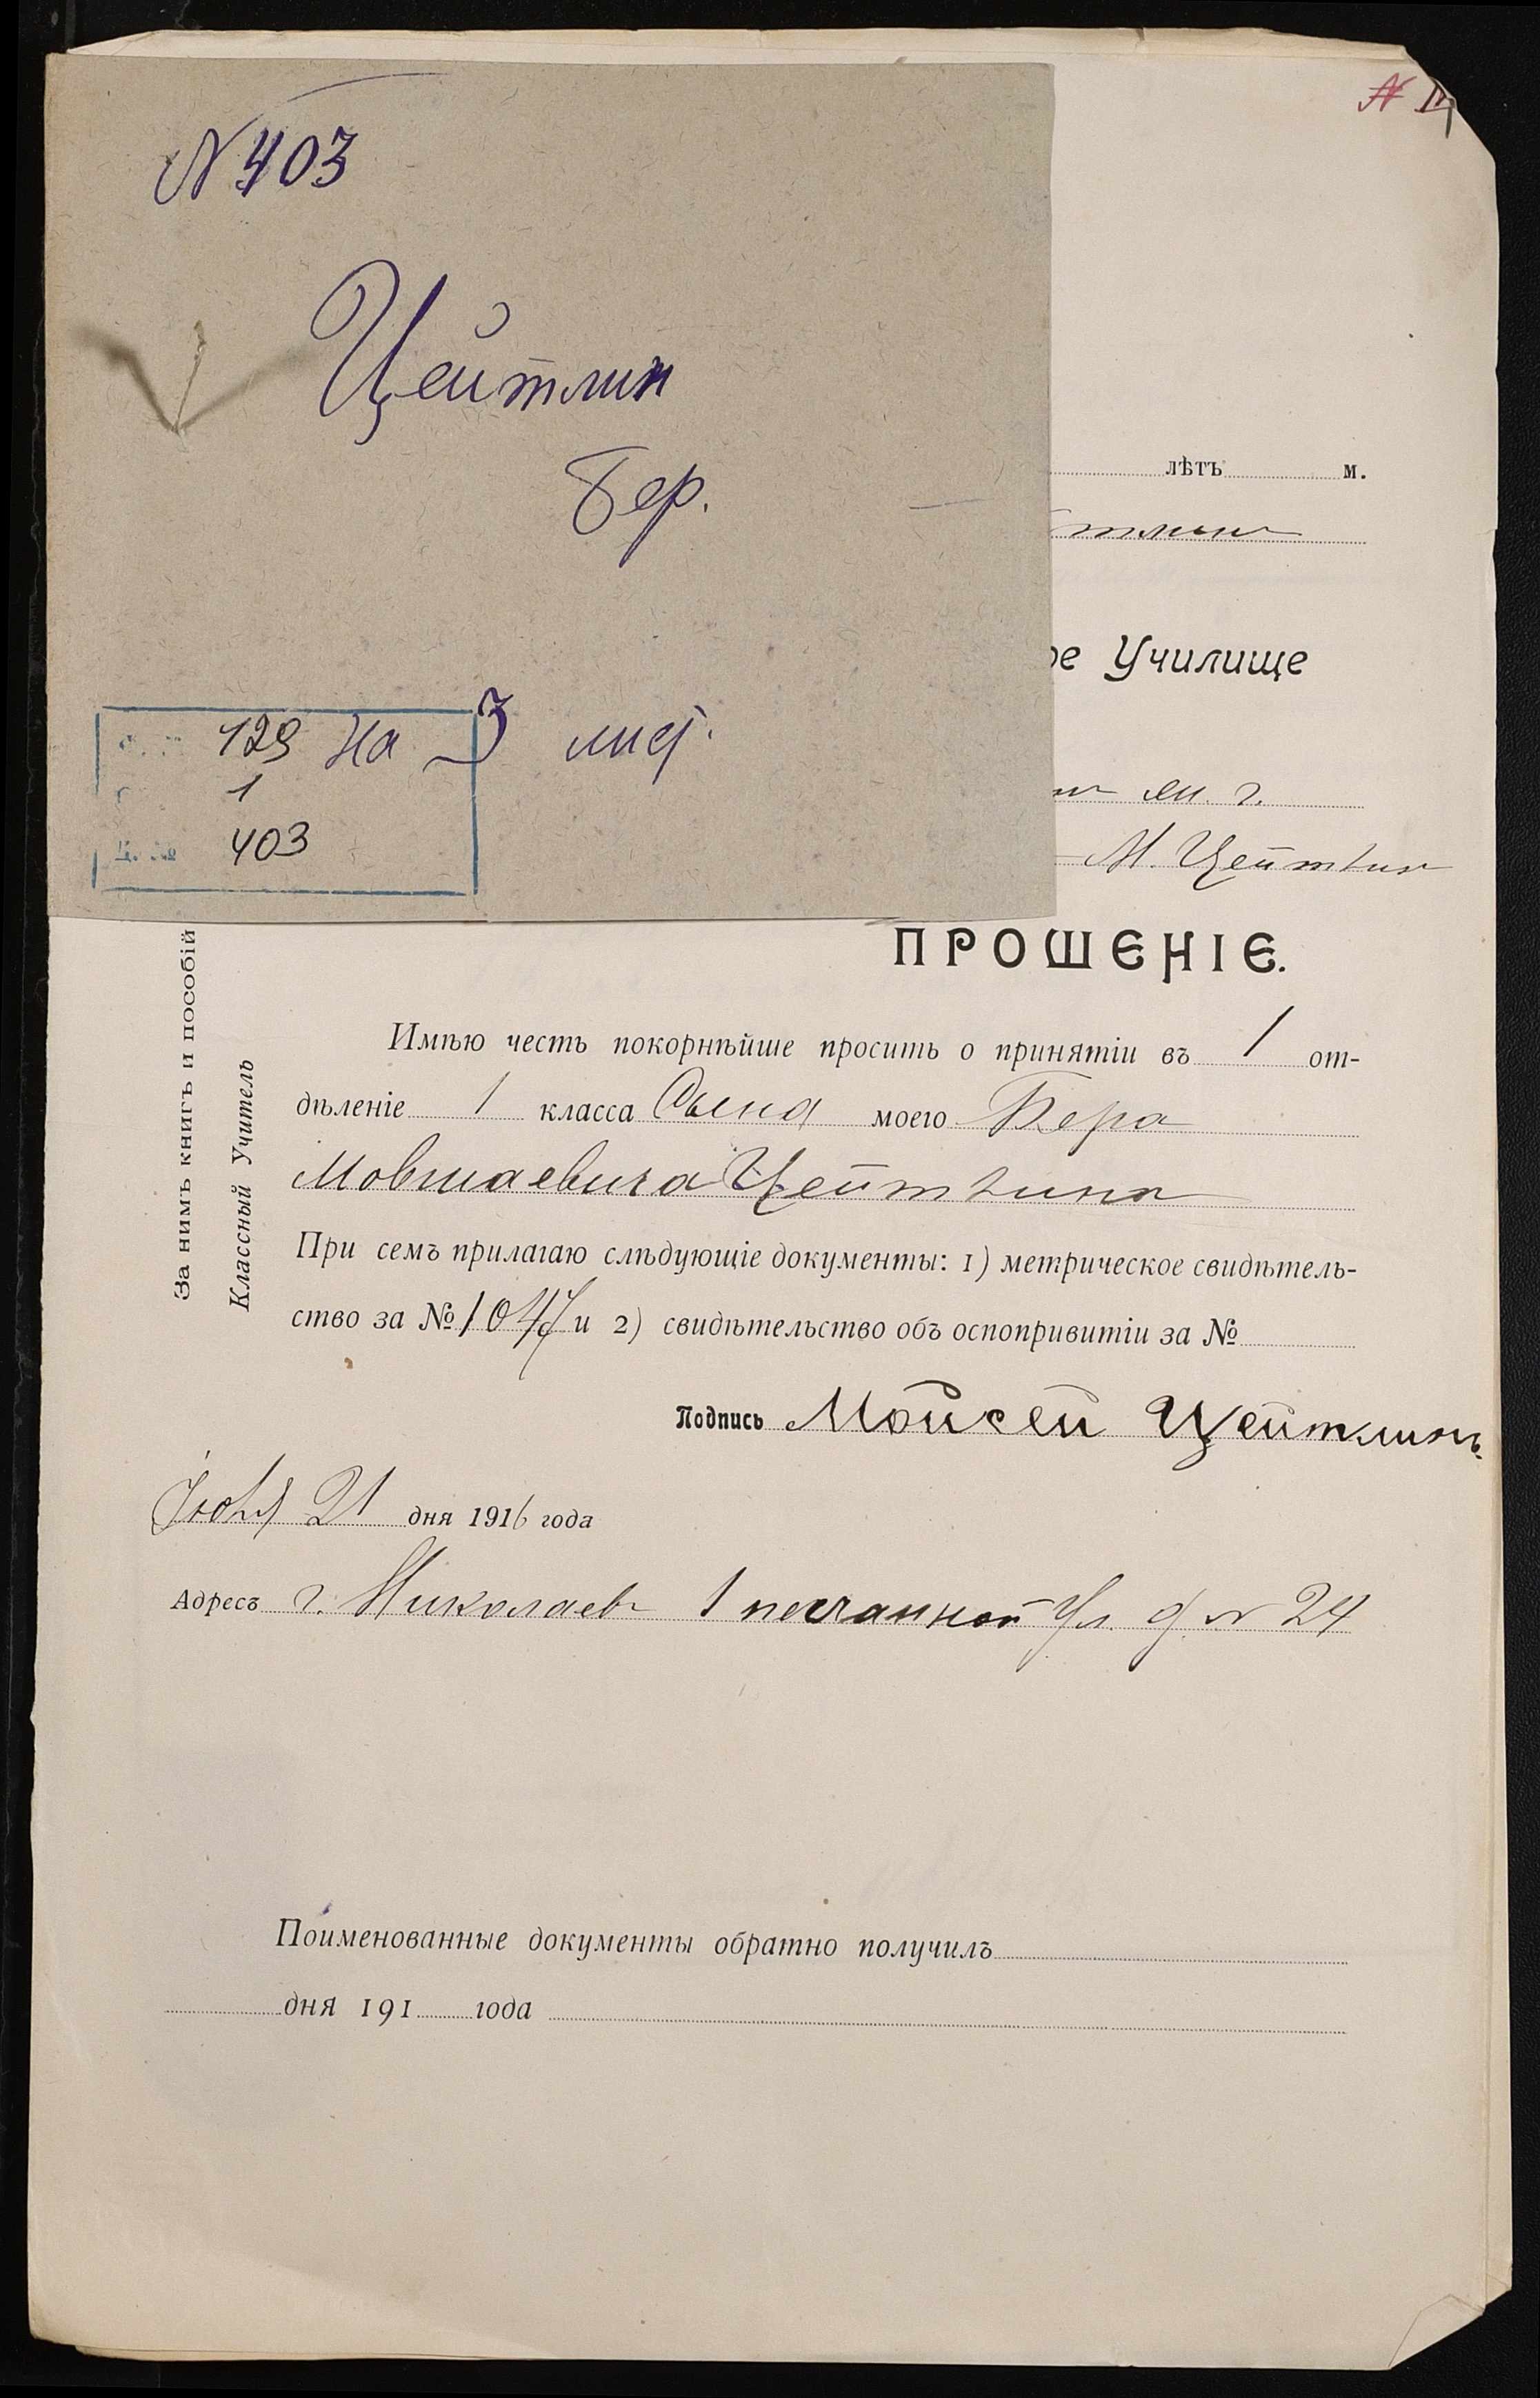 N 403
Цейтлин
Бер.
129 На 3 лист.
1
403
лѣтъ м.
тлин
ое Училище
М. Цейтлин
ПРОШЕНІЕ.
Имѣю честь покорнѣйше просить о принятіи въ 1 от-
дѣленіе 1 класса Сына моего Бера
Мовшаевича Цейтлина
При семъ прилагаю слѣдующіе документы: 1) метрическое свидѣтель-
ство за № 1047 и 2) свидѣтельство объ оспопривитіи за №
Подпись Мойсей Цейтлинъ.
21 дня 1916 года
Адресъ г. Николаев 1 песчанной ул. д. N 24
Поименованные документы обратно получилъ
дня 191 года
За нимъ книгъ и пособій
Классный Учитель